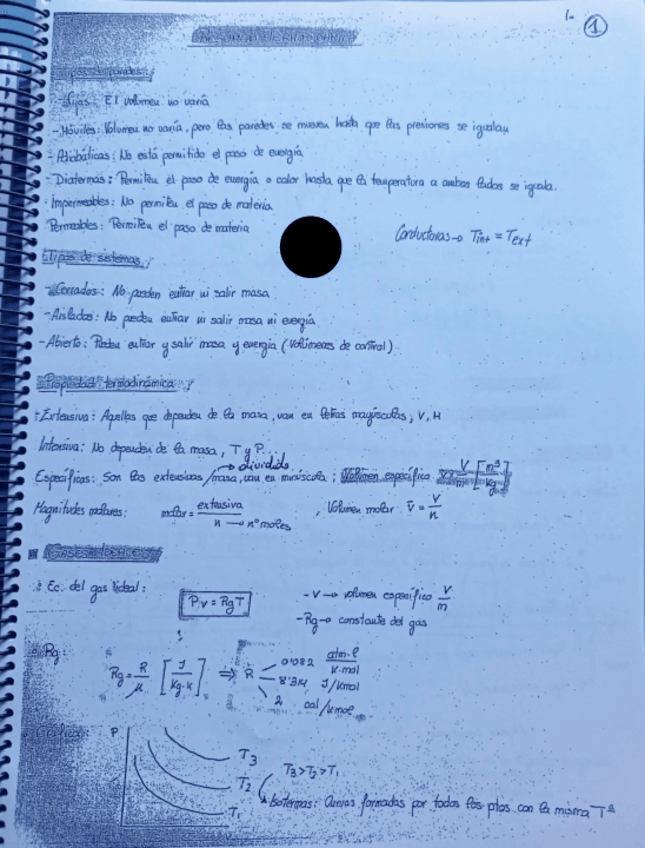 1. ①
Tipos de paredes:
- Fijas: El volumen no varía
- Móviles: Volumen no varía, pero las paredes se mueven hasta que las presiones se igualan
- Adiabáticas: No está permitido el paso de energía
- Diatermas: Permiten el paso de energía o calor hasta que la temperatura a ambos lados se iguala.
- Impermeables: No permiten el paso de materia
Permeables: Permiten el paso de materia
Conductoras → Tint = Text
Tipos de sistemas:
- Cerrados: No pueden entrar ni salir masa
- Aislados: No pueden entrar ni salir masa ni energía
- Abierto: Pueden entrar y salir masa y energía (Volúmenes de control)
- Propiedad termodinámica:
- Extensiva: Aquellas que dependen de la masa, van en letras mayúsculas, V, H
Intensiva: No dependen de la masa, T y P.
→ dividido
Específicas: Son las extensivas / masa, van en minúscula; Volumen específico v = V/m [m³/kg]
Magnitudes molares: molar = extensiva / n → nº moles, Volumen molar v̄ = V/n
GASES IDEALES
Ec. del gas ideal: P·v = RgT
- v → volumen específico V/m
- Rg → constante del gas
Rg:
Rg = R/μ [J/kg·K] ⇒ R
0'082 atm·l/K·mol
8'314 J/Kmol
2 cal/Kmol
Gráfica: P
T3
T2
T1
T3 > T2 > T1
Isotermas: Curvas formadas por todos los ptos con la misma Tª